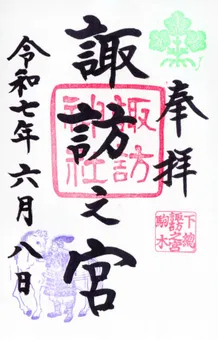 奉拝
諏訪之宮
諏訪
神社
下総
諏訪之宮
駒木
令和七年六月八日